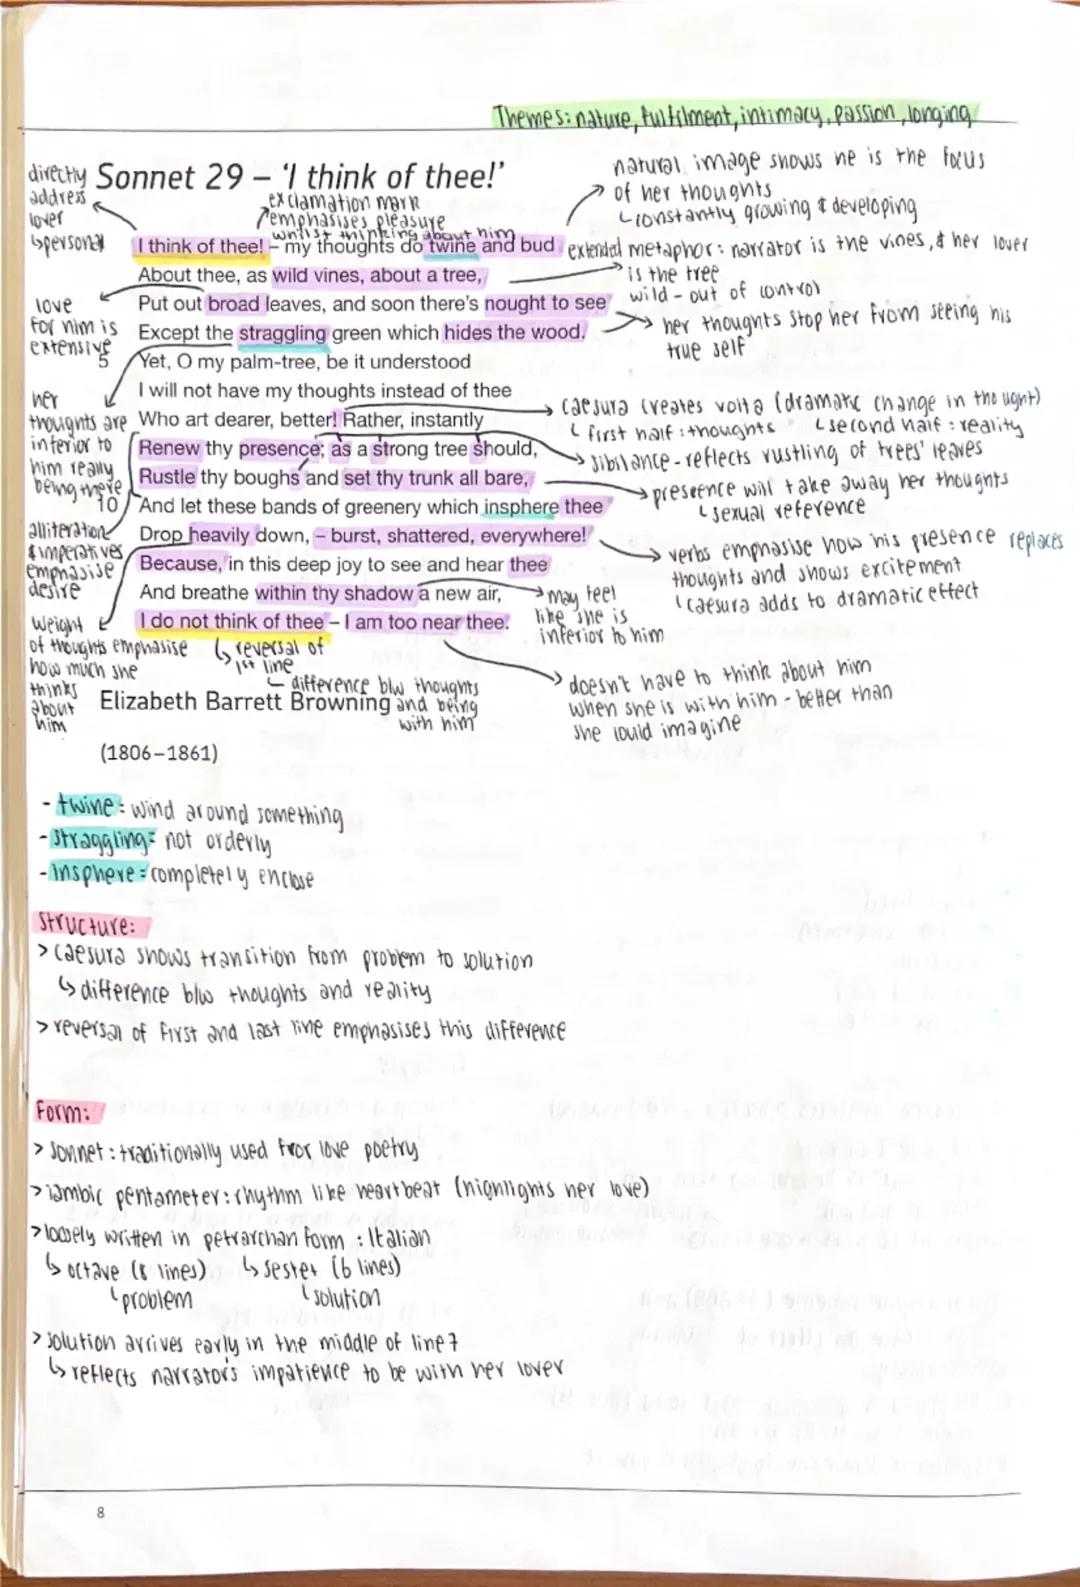 Themes: nature, fulfilment, intimacy, passion, longing
Sonnet 29 – 'I think of thee!'
directly
address
lover
↳personal
exclamation mark
emphasises pleasure
whilst thinking about him
natural image shows he is the focus
of her thoughts
↳constantly growing & developing
I think of thee! – my thoughts do twine and bud
About thee, as wild vines, about a tree,
Put out broad leaves, and soon there's nought to see
Except the straggling green which hides the wood.
5 Yet, O my palm-tree, be it understood
I will not have my thoughts instead of thee
Who art dearer, better! Rather, instantly
Renew thy presence; as a strong tree should,
Rustle thy boughs and set thy trunk all bare,
10 And let these bands of greenery which insphere thee
Drop heavily down, – burst, shattered, everywhere!
Because, in this deep joy to see and hear thee
And breathe within thy shadow a new air,
I do not think of thee – I am too near thee.
extended metaphor: narrator is the vines, & her lover
is the tree
wild - out of control
her thoughts stop her from seeing his
true self
caesura creates volta (dramatic change in thought)
first half: thoughts ↳second half: reality
sibilance - reflects rustling of trees' leaves
presence will take away her thoughts
↳sexual reference
verbs emphasise how his presence replaces
thoughts and shows excitement
↳caesura adds to dramatic effect
love
for him is
extensive
her
thoughts are
inferior to
him really
being there
alliteration
& imperatives
emphasise
desire
weight
of thoughts emphasise
how much she
thinks
about
him
↳reversal of
1st line
↳difference b/w thoughts
and being
with him
may feel
like she is
inferior to him
doesn't have to think about him
when she is with him - better than
she could imagine
Elizabeth Barrett Browning
(1806–1861)
- twine = wind around something
- straggling = not orderly
- insphere = completely enclose
structure:
> caesura shows transition from problem to solution
↳ difference b/w thoughts and reality
> reversal of first and last line emphasises this difference
Form:
> sonnet : traditionally used for love poetry
> iambic pentameter: rhythm like heartbeat (highlights her love)
> loosely written in petrarchan form : Italian
↳ octave (8 lines) ↳ sestet (6 lines)
↳problem ↳solution
> solution arrives early in the middle of line 7
↳ reflects narrator's impatience to be with her lover
8